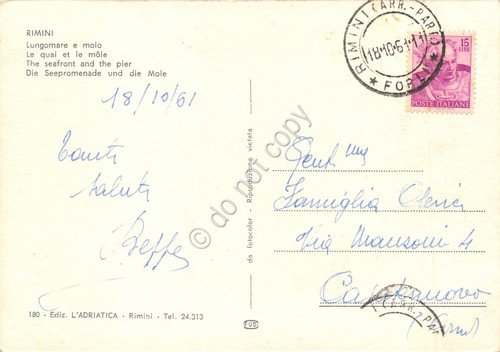 RIMINI
Lungomare e molo
Le quai et le môle
The seafront and the pier
Die Seepromenade und die Mole
18/10/61
Tanti
saluti
Beppe
180 - Ediz. L'ADRIATICA - Rimini - Tel. 24.313
da fotocolor - Riproduzione vietata
do not copy
RIMINI (ARR.-PART.)
18·10·61·11
FORLI
15
LIRE
POSTE ITALIANE
Gent.ma
Famiglia
Via Manzoni 4